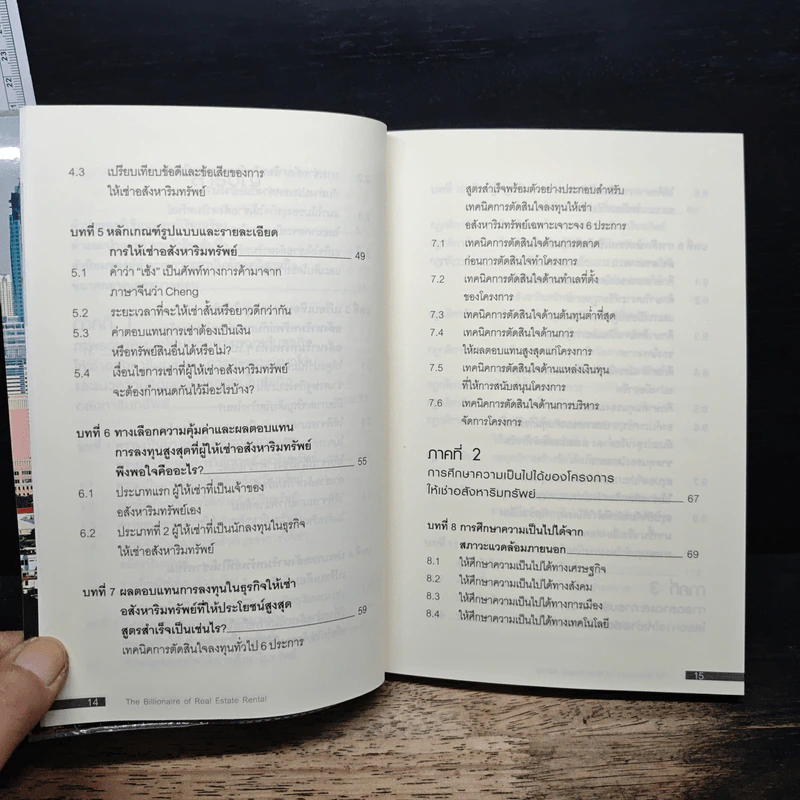 4.3 เปรียบเทียบข้อดีและข้อเสียของการ
ให้เช่าอสังหาริมทรัพย์
บทที่ 5 หลักเกณฑ์รูปแบบและรายละเอียด
การให้เช่าอสังหาริมทรัพย์ 49
5.1 คำว่า "เซ้ง" เป็นศัพท์ทางการค้ามาจาก
ภาษาจีนว่า Cheng
5.2 ระยะเวลาที่จะให้เช่าสั้นหรือยาวดีกว่ากัน
5.3 ค่าตอบแทนการเช่าต้องเป็นเงิน
หรือทรัพย์สินอื่นได้หรือไม่?
5.4 เงื่อนไขการเช่าที่ผู้ให้เช่าอสังหาริมทรัพย์
จะต้องกำหนดกันไว้มีอะไรบ้าง?
บทที่ 6 ทางเลือกความคุ้มค่าและผลตอบแทน
การลงทุนสูงสุดที่ผู้ให้เช่าอสังหาริมทรัพย์
พึงพอใจคืออะไร? 55
6.1 ประเภทแรก ผู้ให้เช่าที่เป็นเจ้าของ
อสังหาริมทรัพย์เอง
6.2 ประเภทที่ 2 ผู้ให้เช่าที่เป็นนักลงทุนในธุรกิจ
ให้เช่าอสังหาริมทรัพย์
บทที่ 7 ผลตอบแทนการลงทุนในธุรกิจให้เช่า
อสังหาริมทรัพย์ที่ให้ประโยชน์สูงสุด
สูตรสำเร็จเป็นเช่นไร? 59
เทคนิคการตัดสินใจลงทุนทั่วไป 6 ประการ
14 The Billionaire of Real Estate Rental
สูตรสำเร็จพร้อมตัวอย่างประกอบสำหรับ
เทคนิคการตัดสินใจลงทุนให้เช่า
อสังหาริมทรัพย์เฉพาะเจาะจง 6 ประการ
7.1 เทคนิคการตัดสินใจด้านการตลาด
ก่อนการตัดสินใจทำโครงการ
7.2 เทคนิคการตัดสินใจด้านทำเลที่ตั้ง
ของโครงการ
7.3 เทคนิคการตัดสินใจด้านต้นทุนต่ำที่สุด
7.4 เทคนิคการตัดสินใจด้านการ
ให้ผลตอบแทนสูงสุดแก่โครงการ
7.5 เทคนิคการตัดสินใจด้านแหล่งเงินทุน
ที่ให้การสนับสนุนโครงการ
7.6 เทคนิคการตัดสินใจด้านการบริหาร
จัดการโครงการ
ภาคที่ 2
การศึกษาความเป็นไปได้ของโครงการ
ให้เช่าอสังหาริมทรัพย์ 67
บทที่ 8 การศึกษาความเป็นไปได้จาก
สภาวะแวดล้อมภายนอก 69
8.1 ให้ศึกษาความเป็นไปได้ทางเศรษฐกิจ
8.2 ให้ศึกษาความเป็นไปได้ทางสังคม
8.3 ให้ศึกษาความเป็นไปได้ทางการเมือง
8.4 ให้ศึกษาความเป็นไปได้ทางเทคโนโลยี
15